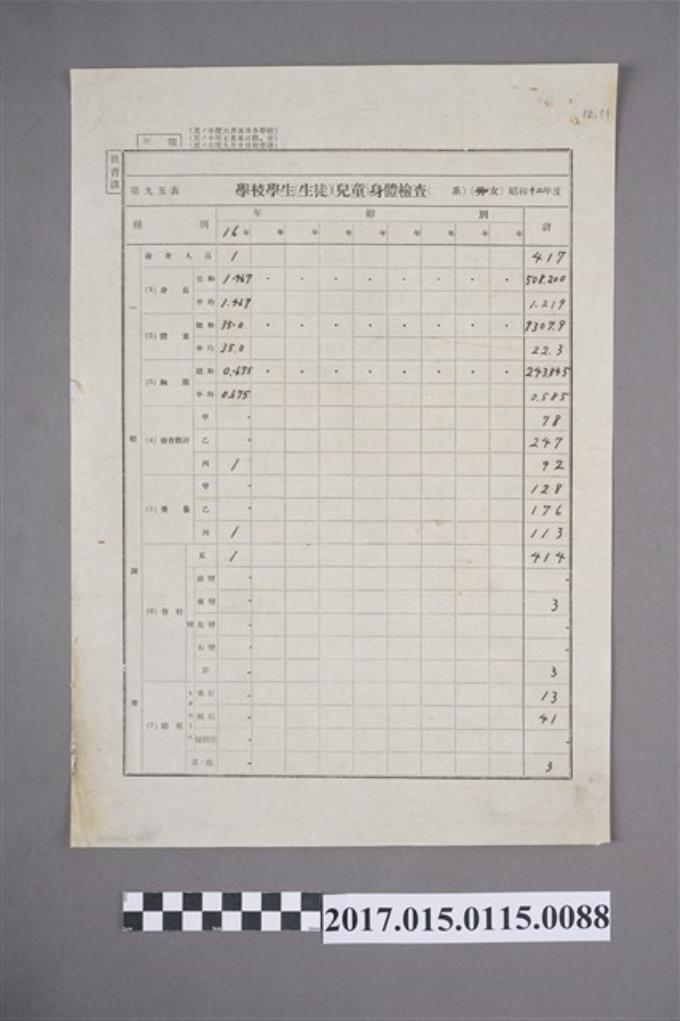 12.11
年報
教育課
第九五表 學校學生(生徒)(兒童)身體檢查( 系)(男女) 昭和十二年度
種別 年齡別 計
16年 年 年 年 年 年 年 年 年
檢查人員 1 417
(1) 身長 總和 1.467 508.200
平均 1.467 1.219
(2) 體重 總和 35.0 9307.9
平均 35.0 22.3
(3) 胸圍 總和 0.675 243.845
平均 0.675 0.585
甲 - 78
乙 - 247
丙 1 92
甲 - 128
(5) 榮養 乙 - 176
丙 1 113
正 1 414
3
(6) 脊柱 左彎
右彎
計 - 3
13
41
(7) 眼疾
其ノ他 - 3
一般調查
2017.015.0115.0088